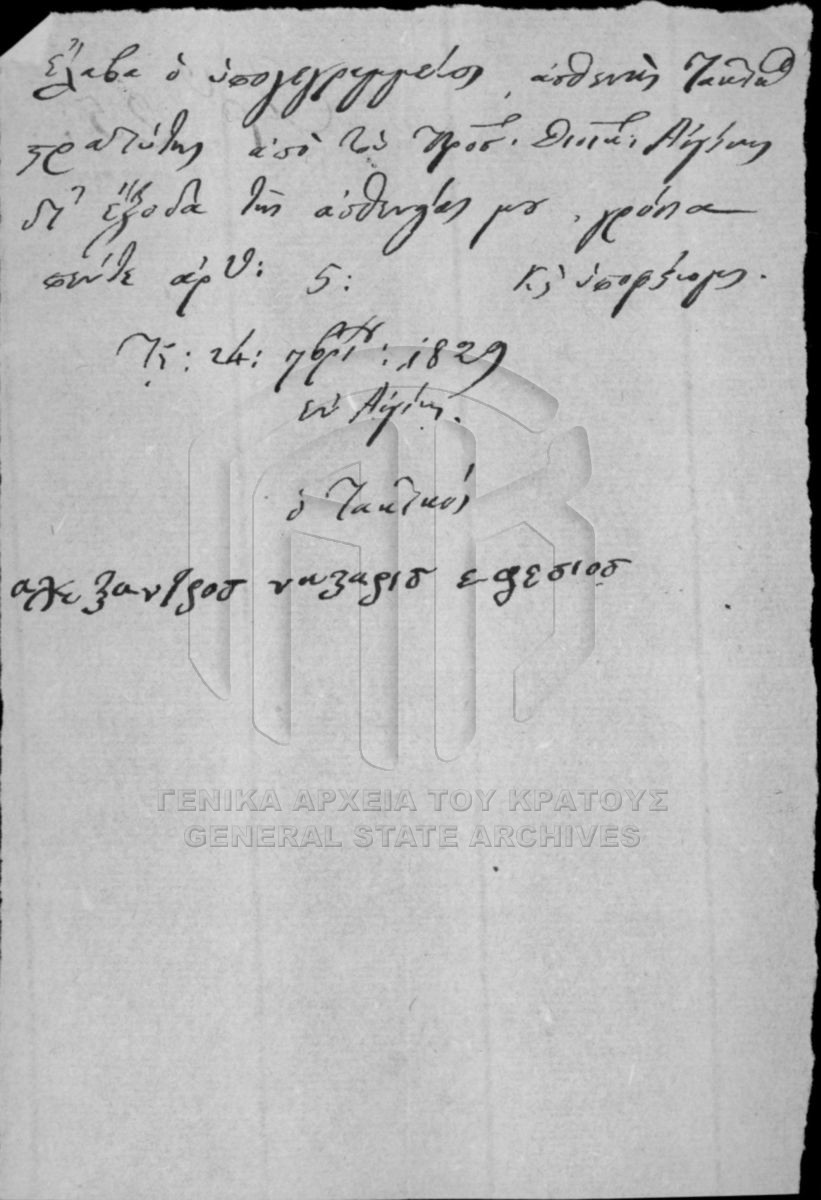 ἔλαβα ὁ ὑπογεγραμμένος ἀσθενὴς Τακτικὸς
στρατιώτης ἀπὸ τὸν Προσ: Διοικ: Αἰγίνης
δι' ἔξοδα τῆς ἀσθενείας μου, γρόσια
πέντε ἀρθ: 5: Κὶ ὑπογράφομαι.
Τῇ: 24: 7βρίου: 1829
ἐν Αἰγίνῃ.
ὁ Τακτικὸς
αλεξαντροσ ναζαρισ εφεσιοσ
ΓΕΝΙΚΑ ΑΡΧΕΙΑ ΤΟΥ ΚΡΑΤΟΥΣ
GENERAL STATE ARCHIVES